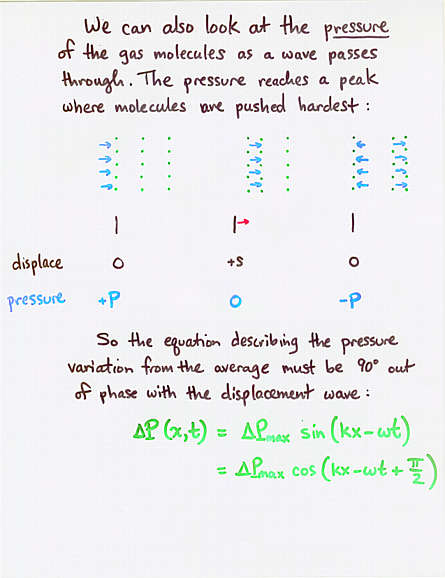 We can also look at the pressure
of the gas molecules as a wave passes
through. The pressure reaches a peak
where molecules are pushed hardest:
displace 0 +s 0
pressure +P 0 -P
So the equation describing the pressure
variation from the average must be 90° out
of phase with the displacement wave:
ΔP(x,t) = ΔPmax sin(kx-ωt)
= ΔPmax cos(kx-ωt+π/2)